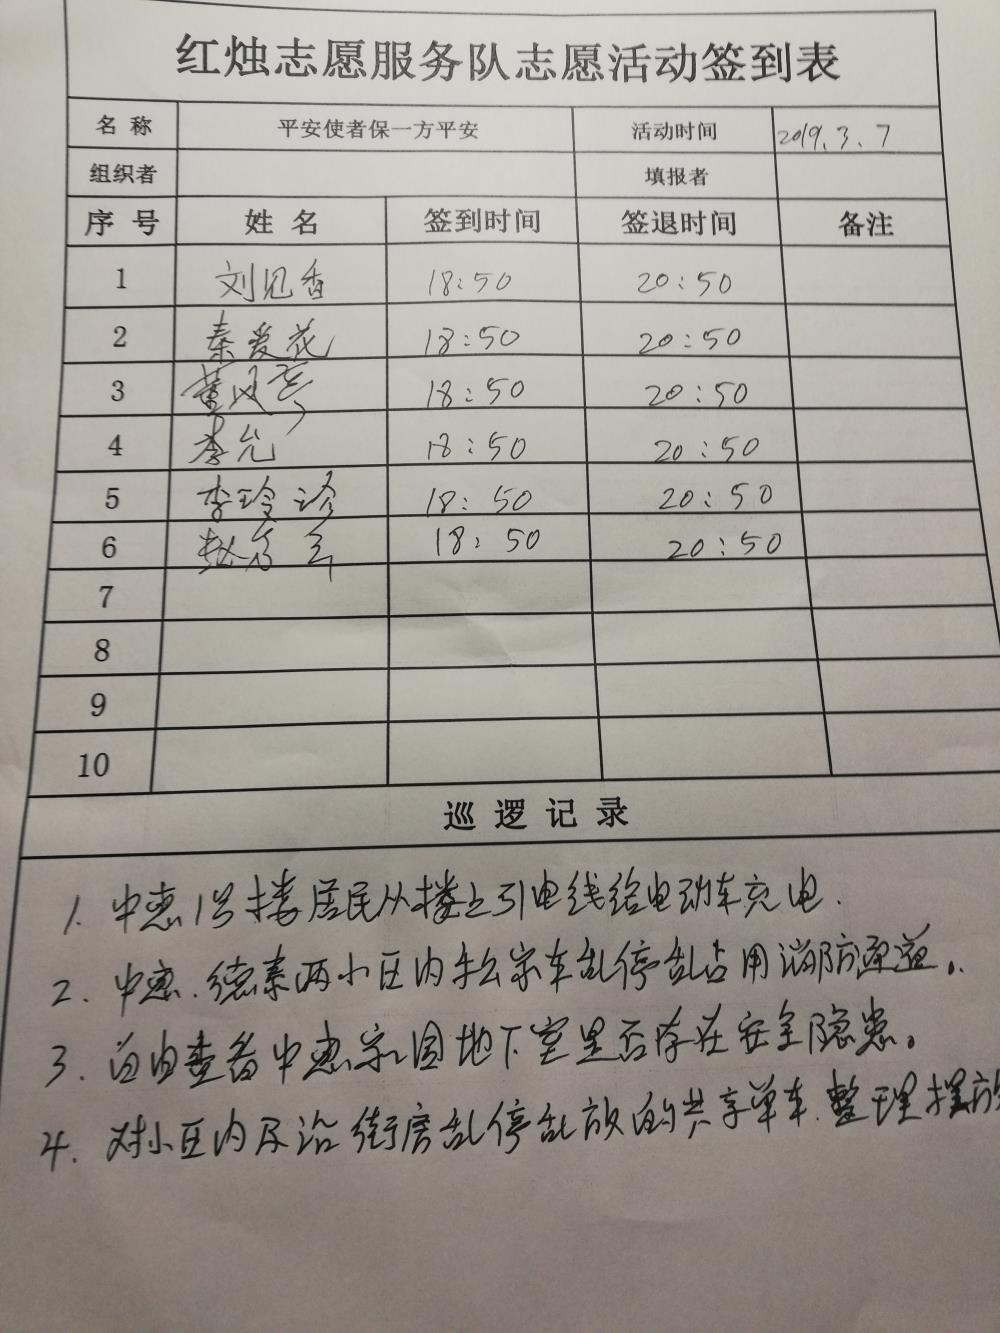 红烛志愿服务队志愿活动签到表
名 称 平安使者保一方平安 活动时间 2019.3.7
组织者 填报者
序 号 姓 名 签到时间 签退时间 备注
1 刘见香 18:50 20:50
2 秦爱花 18:50 20:50
3 董凤 18:50 20:50
4 李允 18:50 20:50
5 李玲珍 18:50 20:50
6 赵 18:50 20:50
7
8
9
10
巡 逻 记 录
1. 中惠1号楼居民从楼上引电线给电动车充电.
2. 中惠.德泰两小区内车乱停乱占用消防通道。
3. 查看中惠家园地下室是否存在安全隐患。
4. 对小区内及沿街房乱停乱放的共享单车.整理摆放